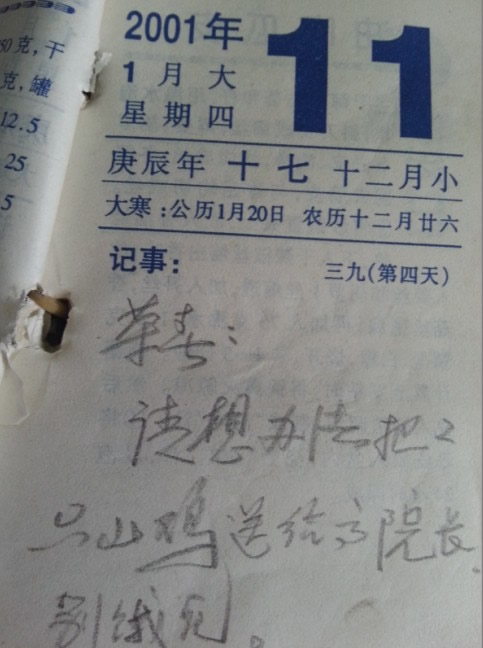 50克，干
克，罐
12.5
25
5
2001年
1月大
星期四
11
庚辰年 十七 十二月小
大寒：公历1月20日 农历十二月廿六
记事： 三九(第四天)
荣春：
请想办法把2
只山鸡送给方院长，
别饿死。